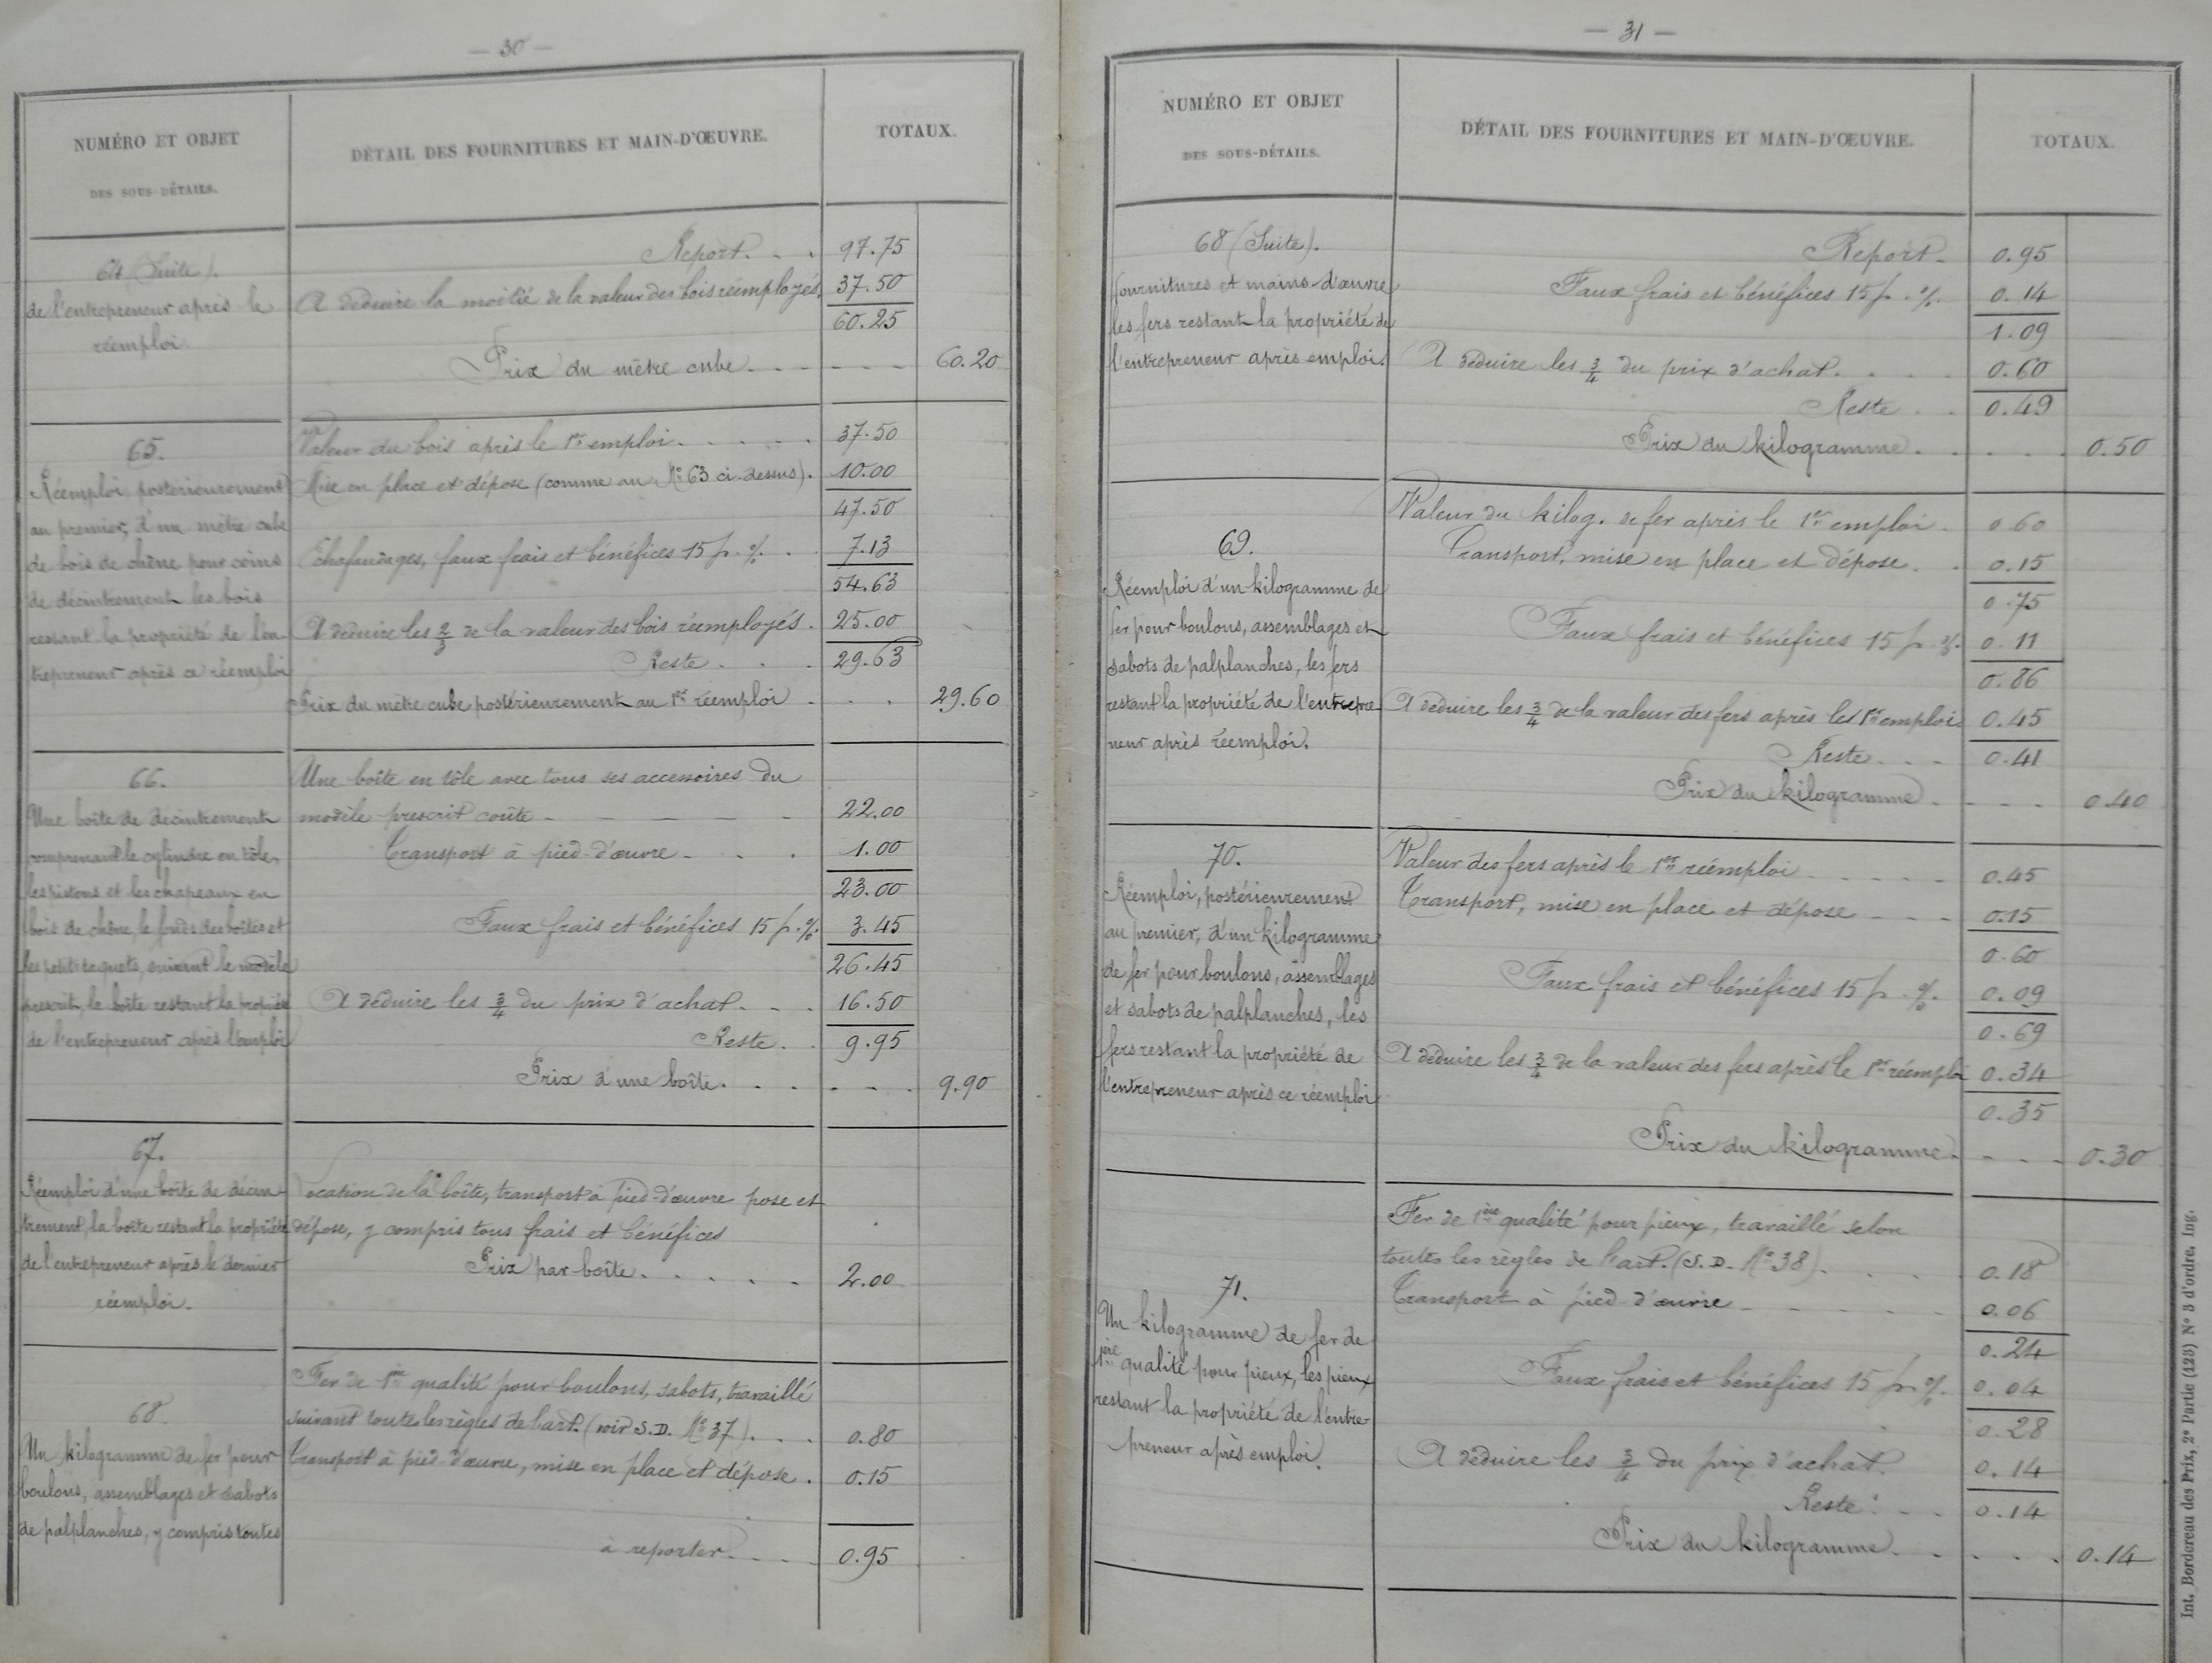 — 30 —
NUMÉRO ET OBJET
DES SOUS-DÉTAILS.
DÉTAIL DES FOURNITURES ET MAIN-D'ŒUVRE.
TOTAUX.
64 (Suite).
de l'entrepreneur après le
réemploi.
Report. . . 97.75
A déduire la moitié de la valeur des bois réemployés. 37.50
60.25
Prix du mètre cube. . . . . . 60.20
65.
Réemploi, postérieurement
au premier, d'un mètre cube
de bois de chêne pour coins
de décintrement les bois
restant la propriété de l'en-
trepreneur après ce réemploi
Valeur du bois après le 1er emploi. . . . . 37.50
Mise en place et dépose (comme au No 63 ci-dessus). 10.00
47.50
Echafaudages, faux frais et bénéfices 15 p. % . . 7.13
54.63
A déduire les 2/3 de la valeur des bois réemployés. 25.00
Reste. . . 29.63
Prix du mètre cube postérieurement au 1er réemploi . . . 29.60
66.
Une boîte de décintrement
comprenant le cylindre en tôle,
les pistons et les chapeaux en
bois de chêne, le fonds des boîtes et
les petits taquets, suivant le modèle
prescrit, la boîte restant la propriété
de l'entrepreneur après l'emploi
Une boîte en tôle avec tous ses accessoires du
modèle prescrit coûte - - - - - 22.00
Transport à pied-d'œuvre. . . . 1.00
23.00
Faux frais et bénéfices 15 p. % 3.45
26.45
A déduire les 3/4 du prix d'achat. . . 16.50
Reste. . 9.95
Prix d'une boîte. . . . . . . 9.90
67.
Réemploi d'une boîte de décin-
trement, la boîte restant la propriété
de l'entrepreneur après le dernier
réemploi.
Location de la boîte, transport à pied-d'œuvre pose et
dépose, y compris tous frais et bénéfices
Prix par boîte. . . . . 2.00
68.
Un kilogramme de fer pour
boulons, assemblages et sabots
de palplanches, y compris toutes
Fer de 1ère qualité pour boulons, sabots, travaillé
suivant toutes les règles de l'art. (voir S.D. No 37). . . 0.80
Transport à pied-d'œuvre, mise en place et dépose. 0.15
à reporter. . . . 0.95
— 31 —
NUMÉRO ET OBJET
DES SOUS-DÉTAILS.
DÉTAIL DES FOURNITURES ET MAIN-D'ŒUVRE.
TOTAUX.
68 (Suite).
fournitures et mains-d'œuvre
les fers restant la propriété de
l'entrepreneur après emploi.
Report. 0.95
Faux frais et bénéfices 15 p. % 0.14
1.09
A déduire les 3/4 du prix d'achat. . . . 0.60
Reste . . 0.49
Prix du kilogramme. . . . . 0.50
69.
Réemploi d'un kilogramme de
fer pour boulons, assemblages et
sabots de palplanches, les fers
restant la propriété de l'entrepre-
neur après réemploi.
Valeur du kilog. de fer après le 1er emploi. 0.60
Transport, mise en place et dépose. . 0.15
0.75
Faux frais et bénéfices 15 p. %. 0.11
0.86
A déduire les 3/4 de la valeur des fers après les 1er emplois 0.45
Reste. . . 0.41
Prix du kilogramme. . . . . 0.40
70.
Réemploi, postérieurement
au premier, d'un kilogramme
de fer pour boulons, assemblages
et sabots de palplanches, les
fers restant la propriété de
l'entrepreneur après ce réemploi
Valeur des fers après le 1er réemploi . . . . . 0.45
Transport, mise en place et dépose - - - 0.15
0.60
Faux frais et bénéfices 15 p. %. 0.09
0.69
A déduire les 3/4 de la valeur des fers après le 1er réemploi 0.34
0.35
Prix du kilogramme. - - - 0.30
71.
Un kilogramme de fer de
1ère qualité pour pieux, les pieux
restant la propriété de l'entre-
preneur après emploi.
Fer de 1ère qualité pour pieux, travaillé selon
toutes les règles de l'art. (S.D. No 38). . . . 0.18
Transport à pied-d'œuvre - - - - - 0.06
0.24
Faux frais et bénéfices 15 p. %. 0.04
0.28
A déduire les 3/4 du prix d'achat. 0.14
Reste. . . 0.14
Prix du kilogramme. . . . . 0.14
Int. Bordereau des Prix, 2e Partie (123) No 3 d'ordre. Ing.